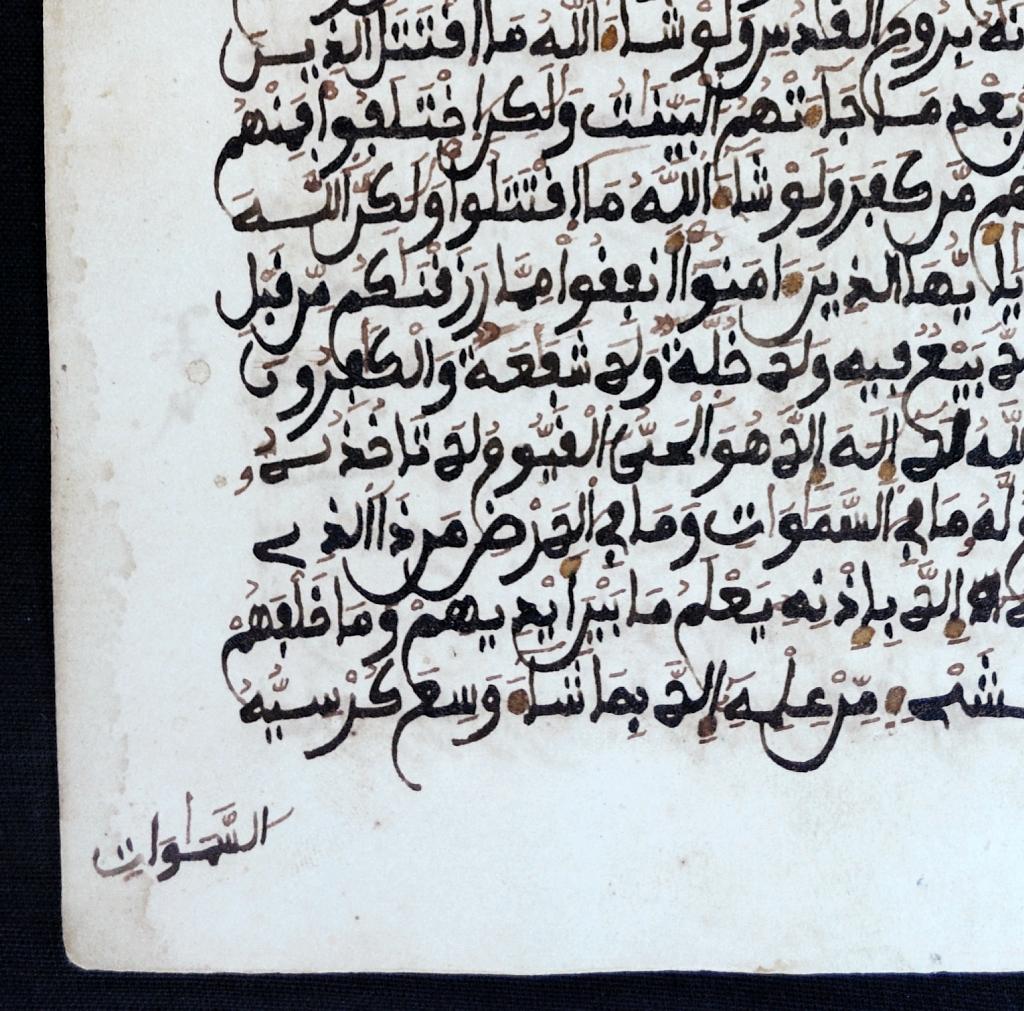 بروح القدس ولو شاء الله ما اقتتل الذين
بعد ما جاءتهم البينت ولكن اختلفوا فمنهم
من كفر ولو شاء الله ما اقتتلوا ولكن الله
يايها الذين ءامنوا أنفقوا مما رزقنكم من قبل
بيع فيه ولا خلة ولا شفعة والكفرون
الله لا إله إلا هو الحي القيوم لا تاخذه
وله ما في السموات وما في الارض من ذا الذي
إلا بإذنه يعلم ما بين أيديهم وما خلفهم
بشيء من علمه إلا بما شاء وسع كرسيه
السموات